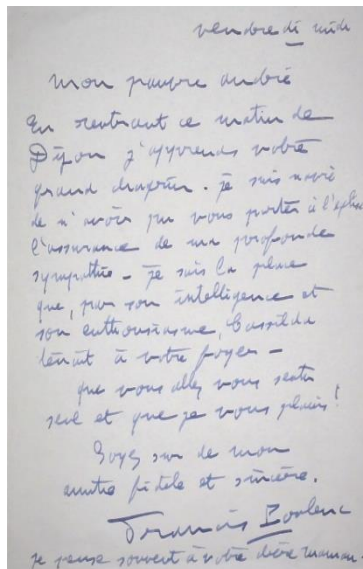 vendredi midi
mon pauvre andré
En rentrant ce matin de
Dijon j'apprends votre
grand chagrin. je suis navré
de n'avoir pu vous porter à l'église
l'assurance de ma profonde
sympathie – je sais la place
que, par son intelligence et
son enthousiasme, Cassilda
tenait à votre foyer –
que vous allez vous sentir
seul et que je vous plains !
Soyez sur de mon
amitié fidèle et sincère.
Francis Poulenc
je pense souvent à votre chère maman